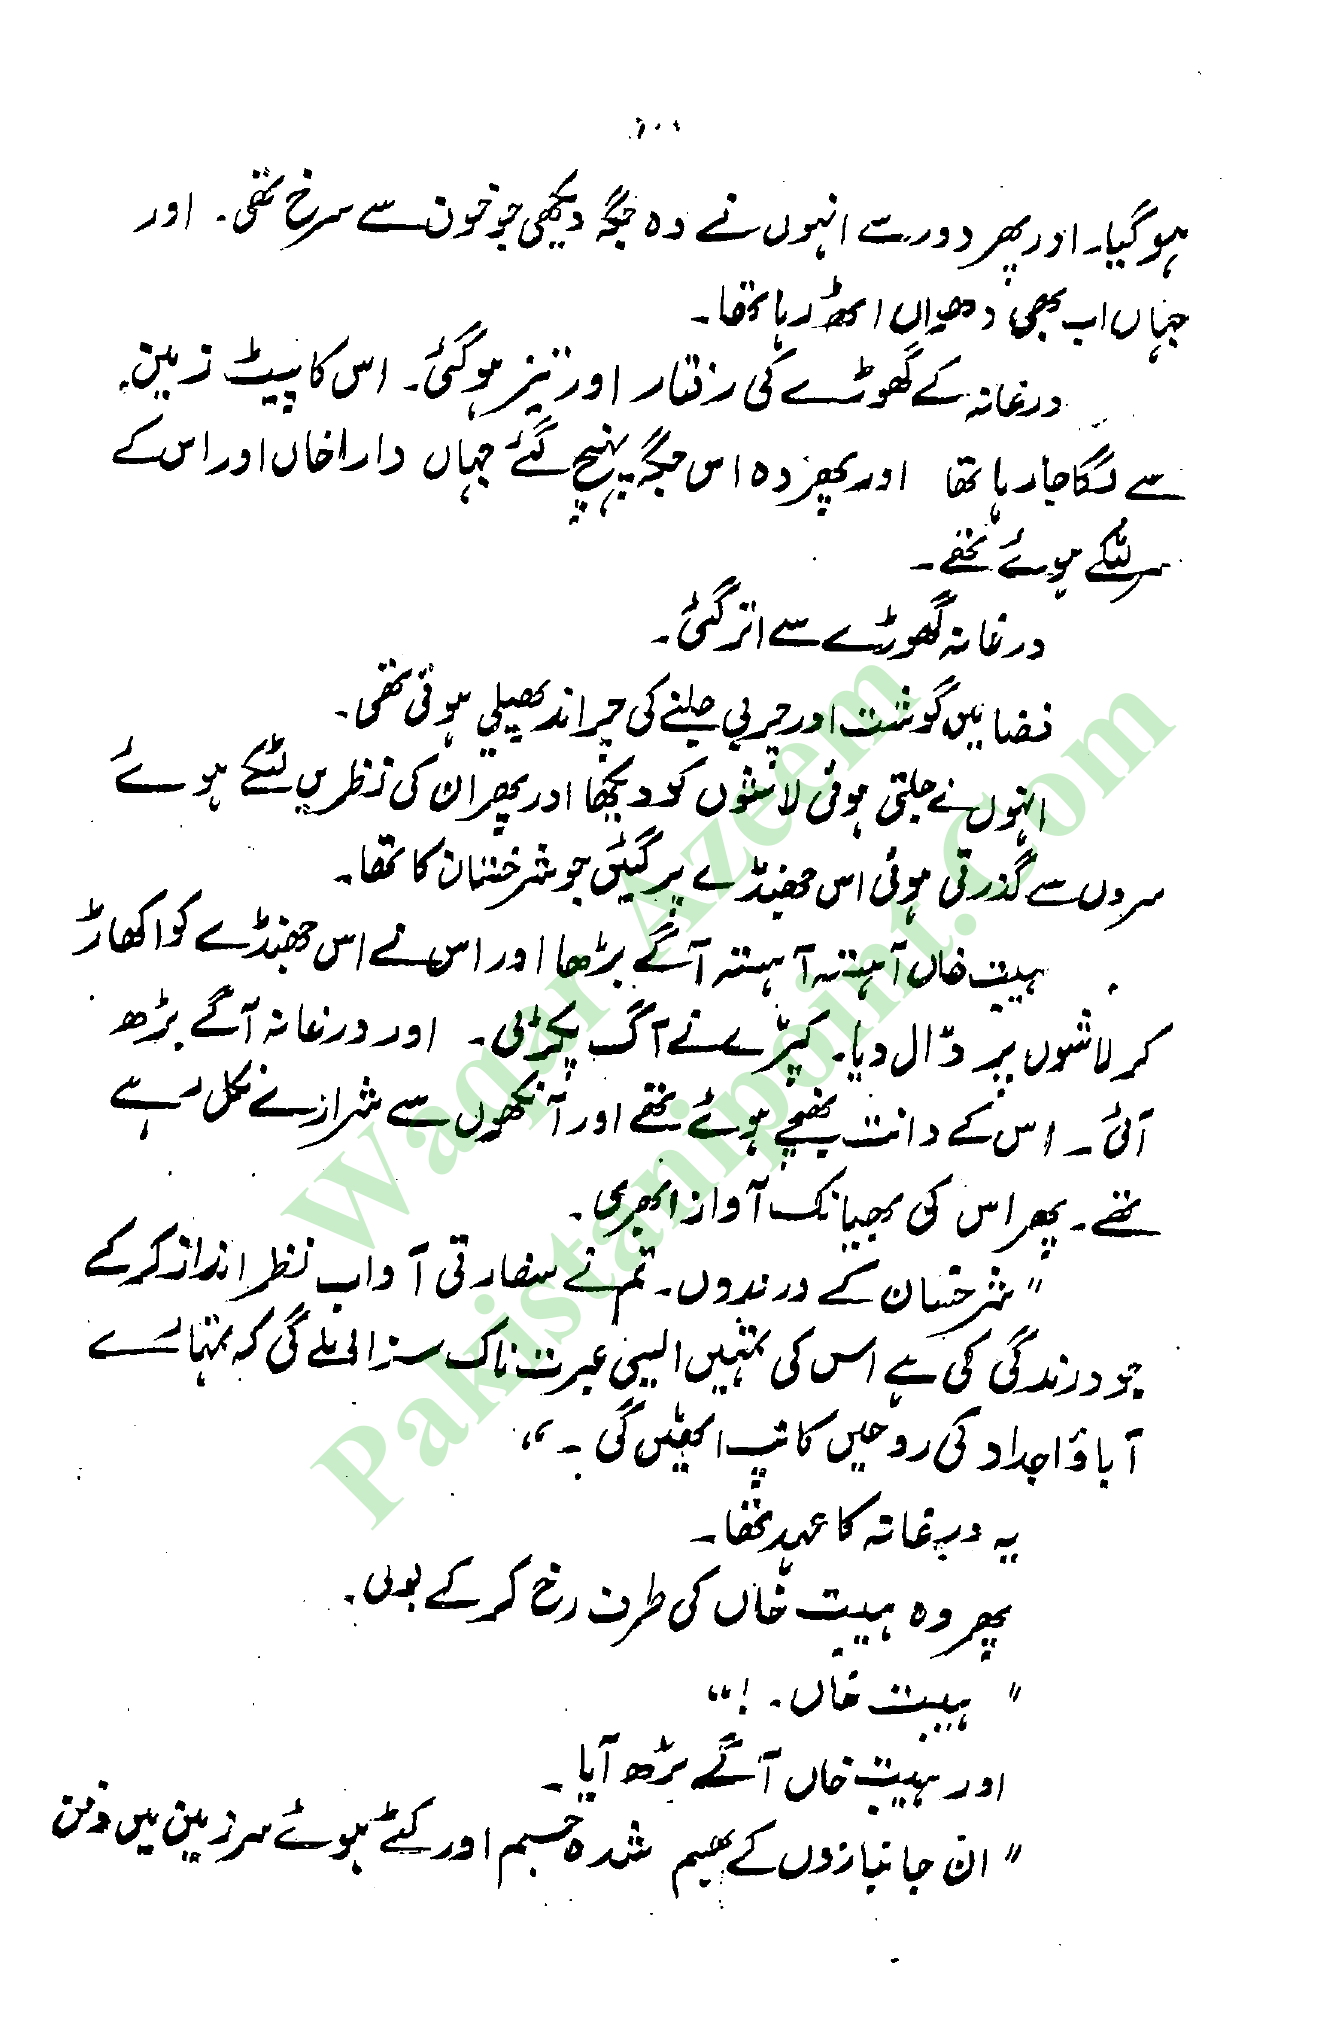 ہوگیا۔ اور پھر دور سے انہوں نے وہ جگہ دیکھی جو خون سے سرخ تھی۔ اور
جہاں اب بھی دھواں اٹھ رہا تھا۔
درغانہ کے گھوڑے کی رفتار اور تیز ہوگئی۔ اس کا پیٹ زمین
سے لگا جا رہا تھا اور پھر وہ اس جگہ پہنچ گئے جہاں دارا خاں اور اس کے
سر لٹکے ہوئے تھے۔
درغانہ گھوڑے سے اتر گئی۔
فضا میں گوشت اور چربی جلنے کی چراند پھیلی ہوئی تھی۔
انہوں نے جلتی ہوئی لاشوں کو دیکھا اور پھر ان کی نظریں لٹکے ہوئے
سروں سے گذرتی ہوئی اس جھنڈے پر گئیں جو شرخنان کا تھا۔
ہیبت خاں آہستہ آہستہ آگے بڑھا اور اس نے اس جھنڈے کو اکھاڑ
کر لاشوں پر ڈال دیا۔ کپڑے نے آگ پکڑلی۔ اور درغانہ آگے بڑھ
آئی۔ اس کے دانت بھنچے ہوئے تھے اور آنکھوں سے شرارے نکل رہے
تھے۔ پھر اس کی بھیانک آواز ابھری۔
"شرخنان کے درندوں۔ تم نے سفارتی آداب نظر انداز کرکے
جو درندگی کی ہے اس کی تمہیں ایسی عبرت ناک سزا ملے گی کہ تمہارے
آباؤ اجداد کی روحیں کانپ اٹھیں گی۔"
یہ درغانہ کا عہد تھا۔
پھر وہ ہیبت خاں کی طرف رخ کرکے بولی۔
"ہیبت خاں۔!"
اور ہیبت خاں آگے بڑھ آیا۔
"ان جانبازوں کے بھسم شدہ جسم اور کٹے ہوئے سر زمین میں دفن
Waqar Azeem
Pakistanipoint.Com